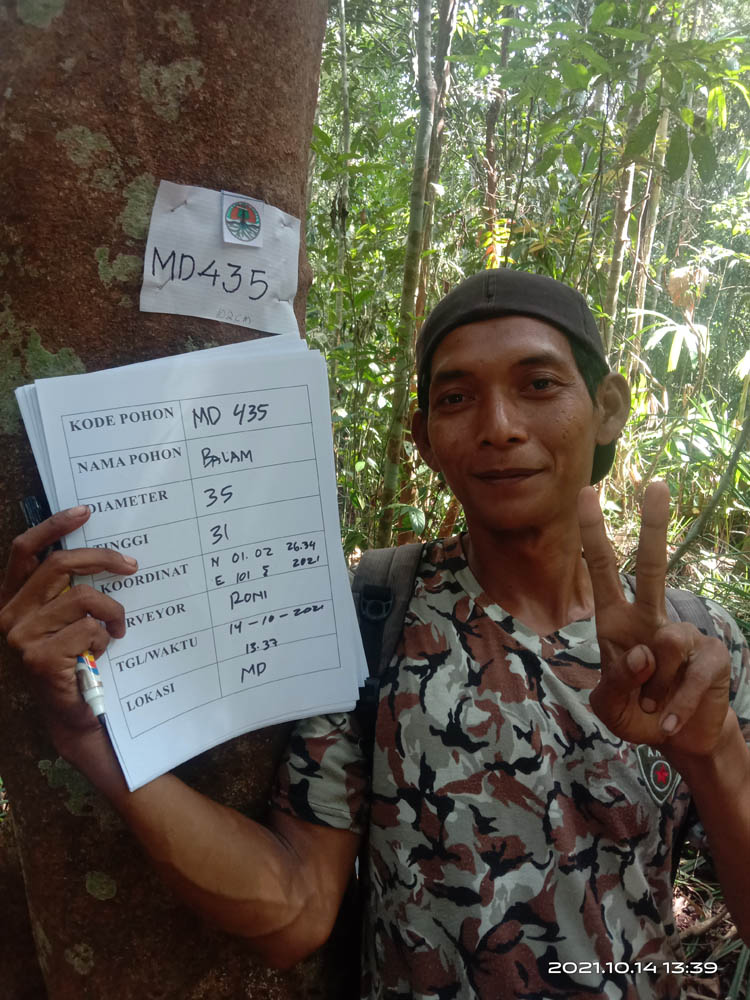 MD435
102CM
KODE POHON MD 435
NAMA POHON BALAM
DIAMETER 35
TINGGI 31
KOORDINAT N 01.02 26.34
E 101 8 2021
RVEYOR RONI
TGL/WAKTU 14-10-2021
13.37
LOKASI MD
2021.10.14 13:39